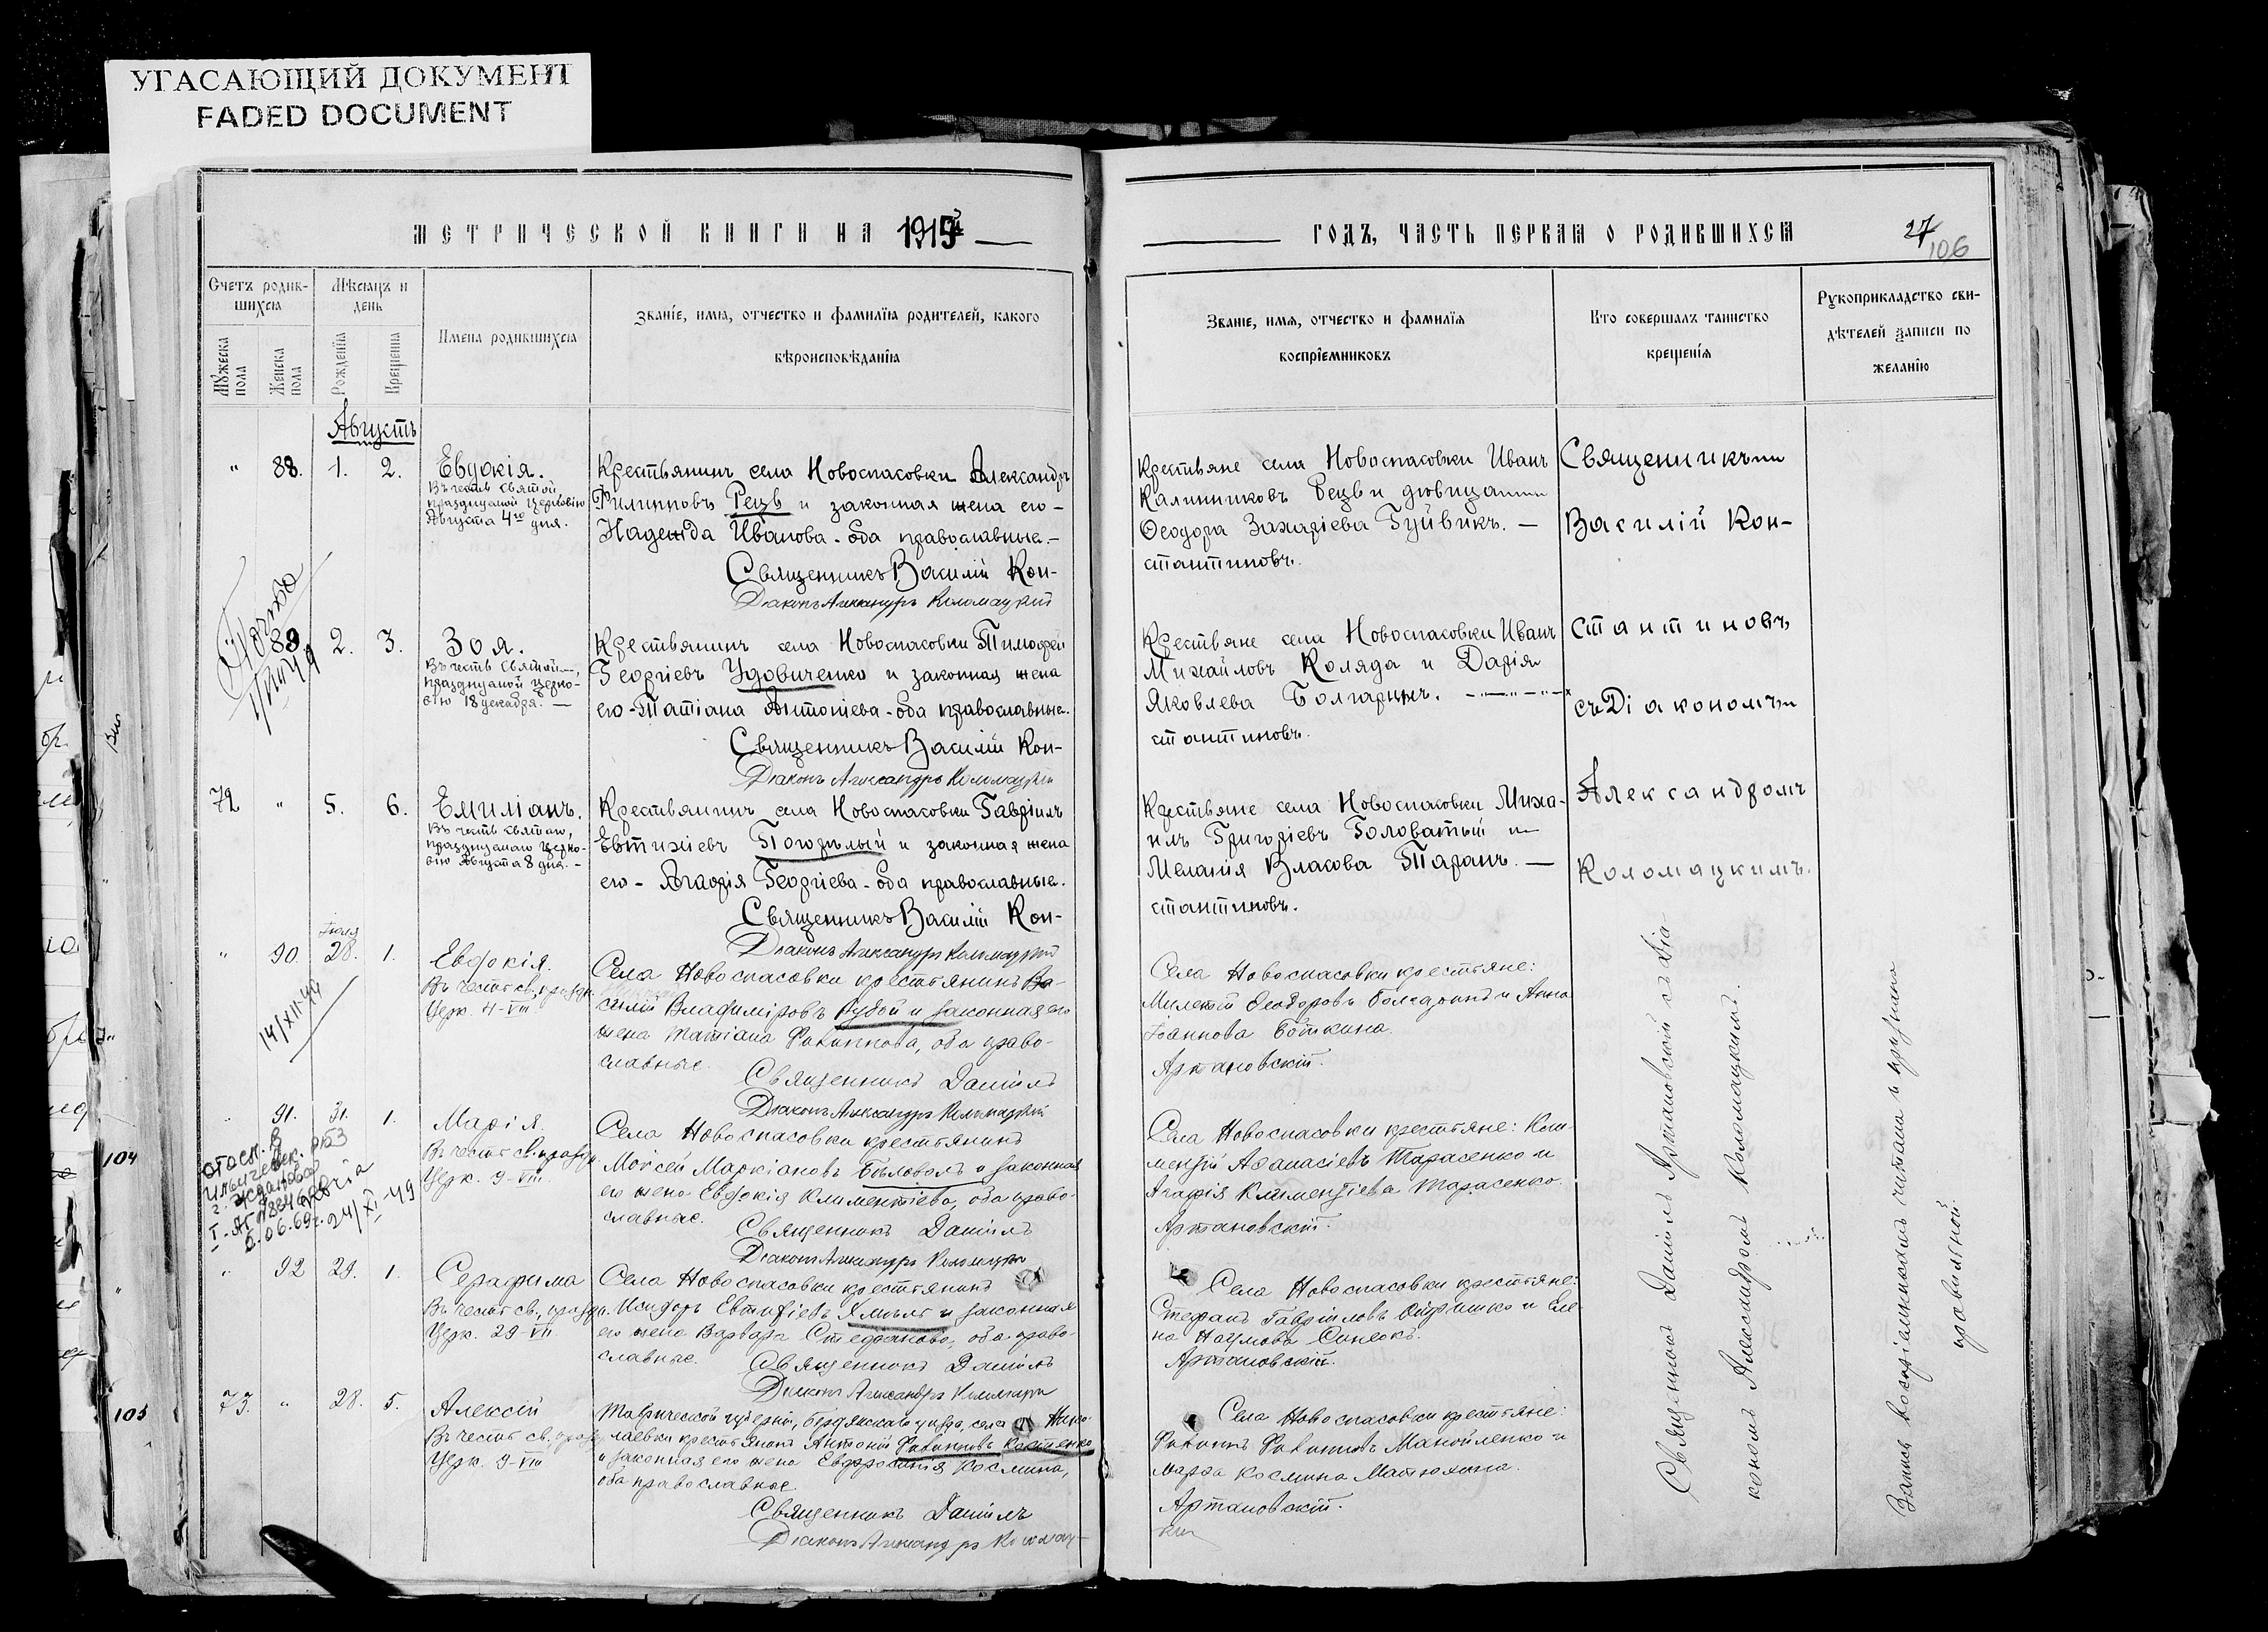 УГАСАЮЩИЙ ДОКУМЕНТ
FADED DOCUMENT
МЕТРИЧЕСКОЙ КНИГИ НА 1915
Счетъ родив-
шихся
Мѣсяцъ и
день
Мужеска пола
Женска пола
Рожденія
Крещенія
Имена родившихся
Званіе, имя, отчество и фамилія родителей, какого
вѣроисповѣданія
Августъ
" 88. 1. 2. Евдокія.
Въ честь святой,
празднуемой Церковію
Августа 4го дня.
Крестьянинъ села Новоспасовки Александръ
Филипповъ Рецъ и законная жена его -
Надежда Иванова - оба православные. -
Священникъ Василій Кон-
Діаконъ Александръ Коломацкій
89 2. 3. Зоя.
Въ честь святой,
празднуемой Церко-
вію 18 декабря. -
Крестьянинъ села Новоспасовки Тимофей
Георгіевъ Удовиченко и законная жена
его - Татіана Антоніева - оба православные.
Священникъ Василій Кон-
Діаконъ Александръ Коломацкій
72 " 5. 6. Емиліанъ.
Въ честь святаго,
празднуемаго Церко-
вію Августа 8 дня. -
Крестьянинъ села Новоспасовки Гавріилъ
Евтихіевъ Погорѣлый и законная жена
его - Агафія Георгіева - оба православные.
Священникъ Василій Кон-
Діаконъ Александръ Коломацкій
" 90 Іюля 28. 1. Евдокія.
Въ честь св., праздн.
Церк. 4-VIII
14/XII-44
Села Новоспасовки крестьянинъ Ва-
силій Владиміровъ Рудой и законная его
жена Татіана Филиппова, оба право-
славные.
Священникъ Даніилъ
Діаконъ Александръ Коломацкій
91. 31. 1. Марія.
Въ честь св. праздн.
Церк. 9-VIII.
24/XI-49
Села Новоспасовки крестьянинъ
Мойсей Маркіановъ Бѣловолъ и законная
его жена Евдокія Климентіева, оба право-
славные.
Священникъ Даніилъ
Діаконъ Александръ Коломацкій
92 29. 1. Серафима
Въ честь св., праздн.
Церк. 29-VII
Села Новоспасовки крестьянинъ
Исидоръ Евтихіевъ Хмыль и законная
его жена Варвара Стефанова, оба право-
славные.
Священникъ Даніилъ
Діаконъ Александръ
73. " 28. 5. Алексій
Въ честь св., праздн.
Церк. 9-VIII
Таврической губерніи, Бердянскаго уѣзда, села Нико-
лаевки крестьянинъ Антоній Филипповъ Костенко
и законная его жена Евфросинія Космина,
оба православные.
Священникъ Даніилъ
Діаконъ Александръ Коломац-
104
105
ГОДЪ, ЧАСТЬ ПЕРВАЯ О РОДИВШИХСЯ
27
106
Званіе, имя, отчество и фамилія
воспріемниковъ
Кто совершалъ таинство
крещенія
Рукоприкладство сви-
дѣтелей записи по
желанію
Крестьяне села Новоспасовки Иванъ
Калинниковъ Рецъ и дѣвица
Ѳеодора Захаріева Гуйвикъ. -
стантиновъ.
Крестьяне села Новоспасовки Иванъ
Михайловъ Коляда и Дарія
Яковлева Болгаринъ.
стантиновъ.
Крестьяне села Новоспасовки Миха-
илъ Григоріевъ Головатый и
Меланія Власова Таранъ. -
стантиновъ.
Села Новоспасовки крестьяне:
Мелетій Ѳеодоровъ и Анна
Іоаннова Бѣткина.
Артановскій.
Села Новоспасовки крестьяне: Кли-
ментій Аѳанасіевъ Тарасенко и
Агафія Климентіева Тарасенко.
Артановскій.
Села Новоспасовки крестьяне:
Стефанъ Гавріиловъ Онришко и Еле-
на Наумова Синеокъ.
Артановскій.
Села Новоспасовки крестьяне:
Филиппъ Филипповъ Манойленко и
Марѳа Космина Матюхина.
Артановскій.
кій
Священникъ
Василій Кон-
стантиновъ
съ Діакономъ
Александромъ
Коломацкимъ.
Священникъ Даніилъ Артановскій съ Діа-
кономъ Александромъ Коломацкимъ.
правильной.